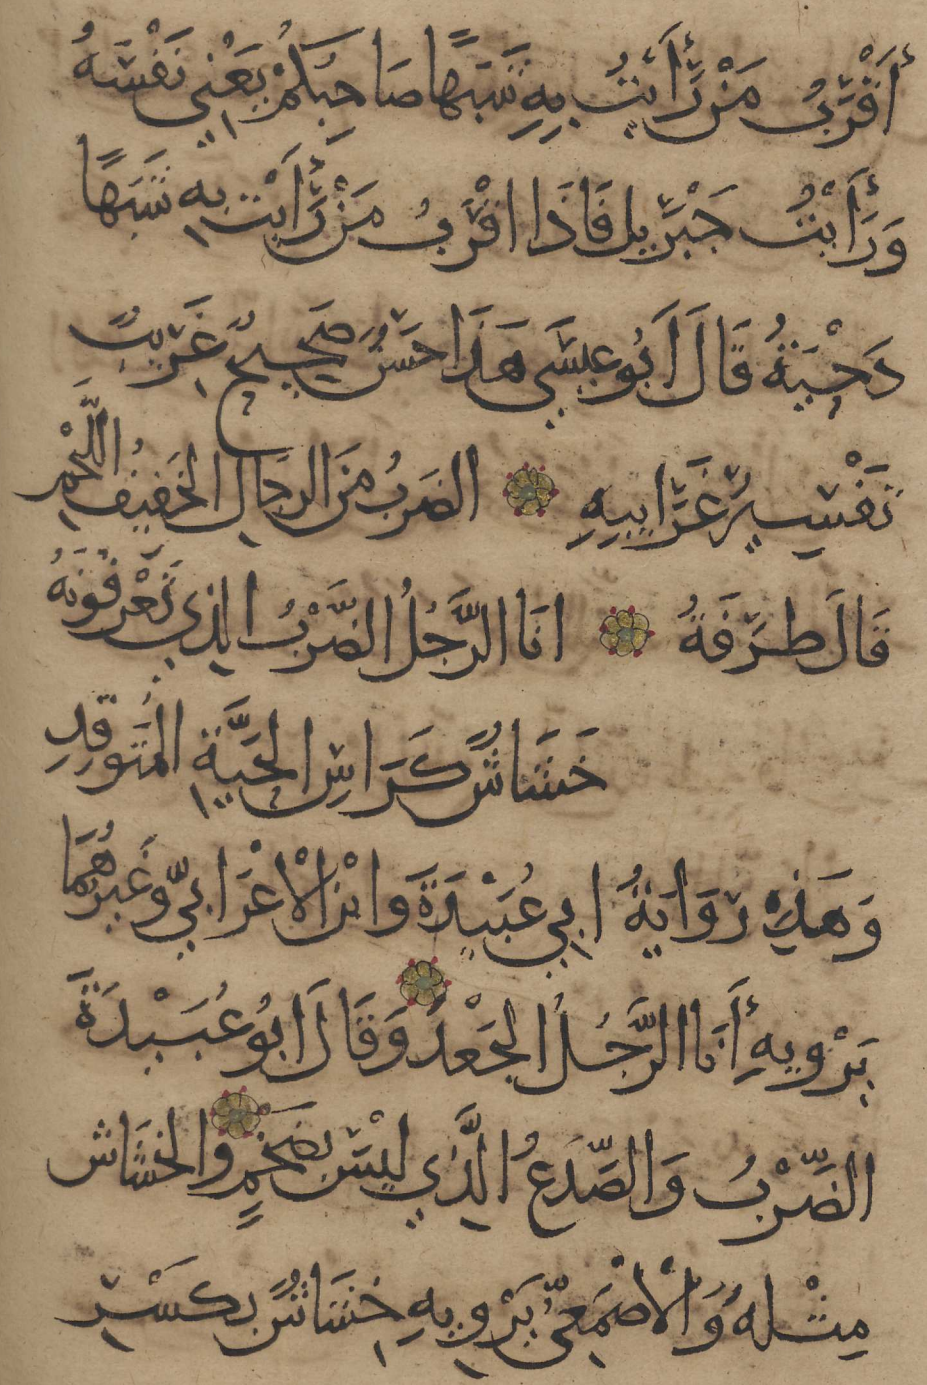 أَقْرَبُ مَنْ رَأَيْتُ بِهِ شَبَهًا صَاحِبُكُمْ يَعْنِي نَفْسَهُ
وَرَأَيْتُ جَبْرَيِل فَاذَا اقْرَبُ مَنْ رَأَيْت بِهِ شَبَهًا
دَحْيَةُ قَالَ اَبُو عِيسَى هَذَا حَسَنٌ صَحِيحٌ غَرَيبٌ
تَفْسِيرُ غَرَايبِهِ الضَرَبُ مَنَ الرجَالِ الخَفِيفُ اللَّحْمِ
قَالَ طَرَفَةُ انَا الرَّجُلُ الضَّرْبُ الذِي تَعْرفُونَهُ
خَشَاشٌ كَرَاسِ الحَيَّةِ المُتَوَقِدِ
وَهَذِهِ روَايَةُ ابِي عُبَيْدَةَ وَابْن الْاعْرَابيِّ وغَيرهُمَا
يَرْوِيهِ أَنَا الرَّجُلُ الجَعْدُ وَقَالَ ابُو عُبَيْدَةَ
الضَّرْبُ وَالصَّدَعُ الَّذِي ليْسَ بضَخمٍ والخَشَاش
مِثْلهُ وَالْاصْمَعِيُّ يَرْوِيهِ خِشَاشٌ بكَسْرِ